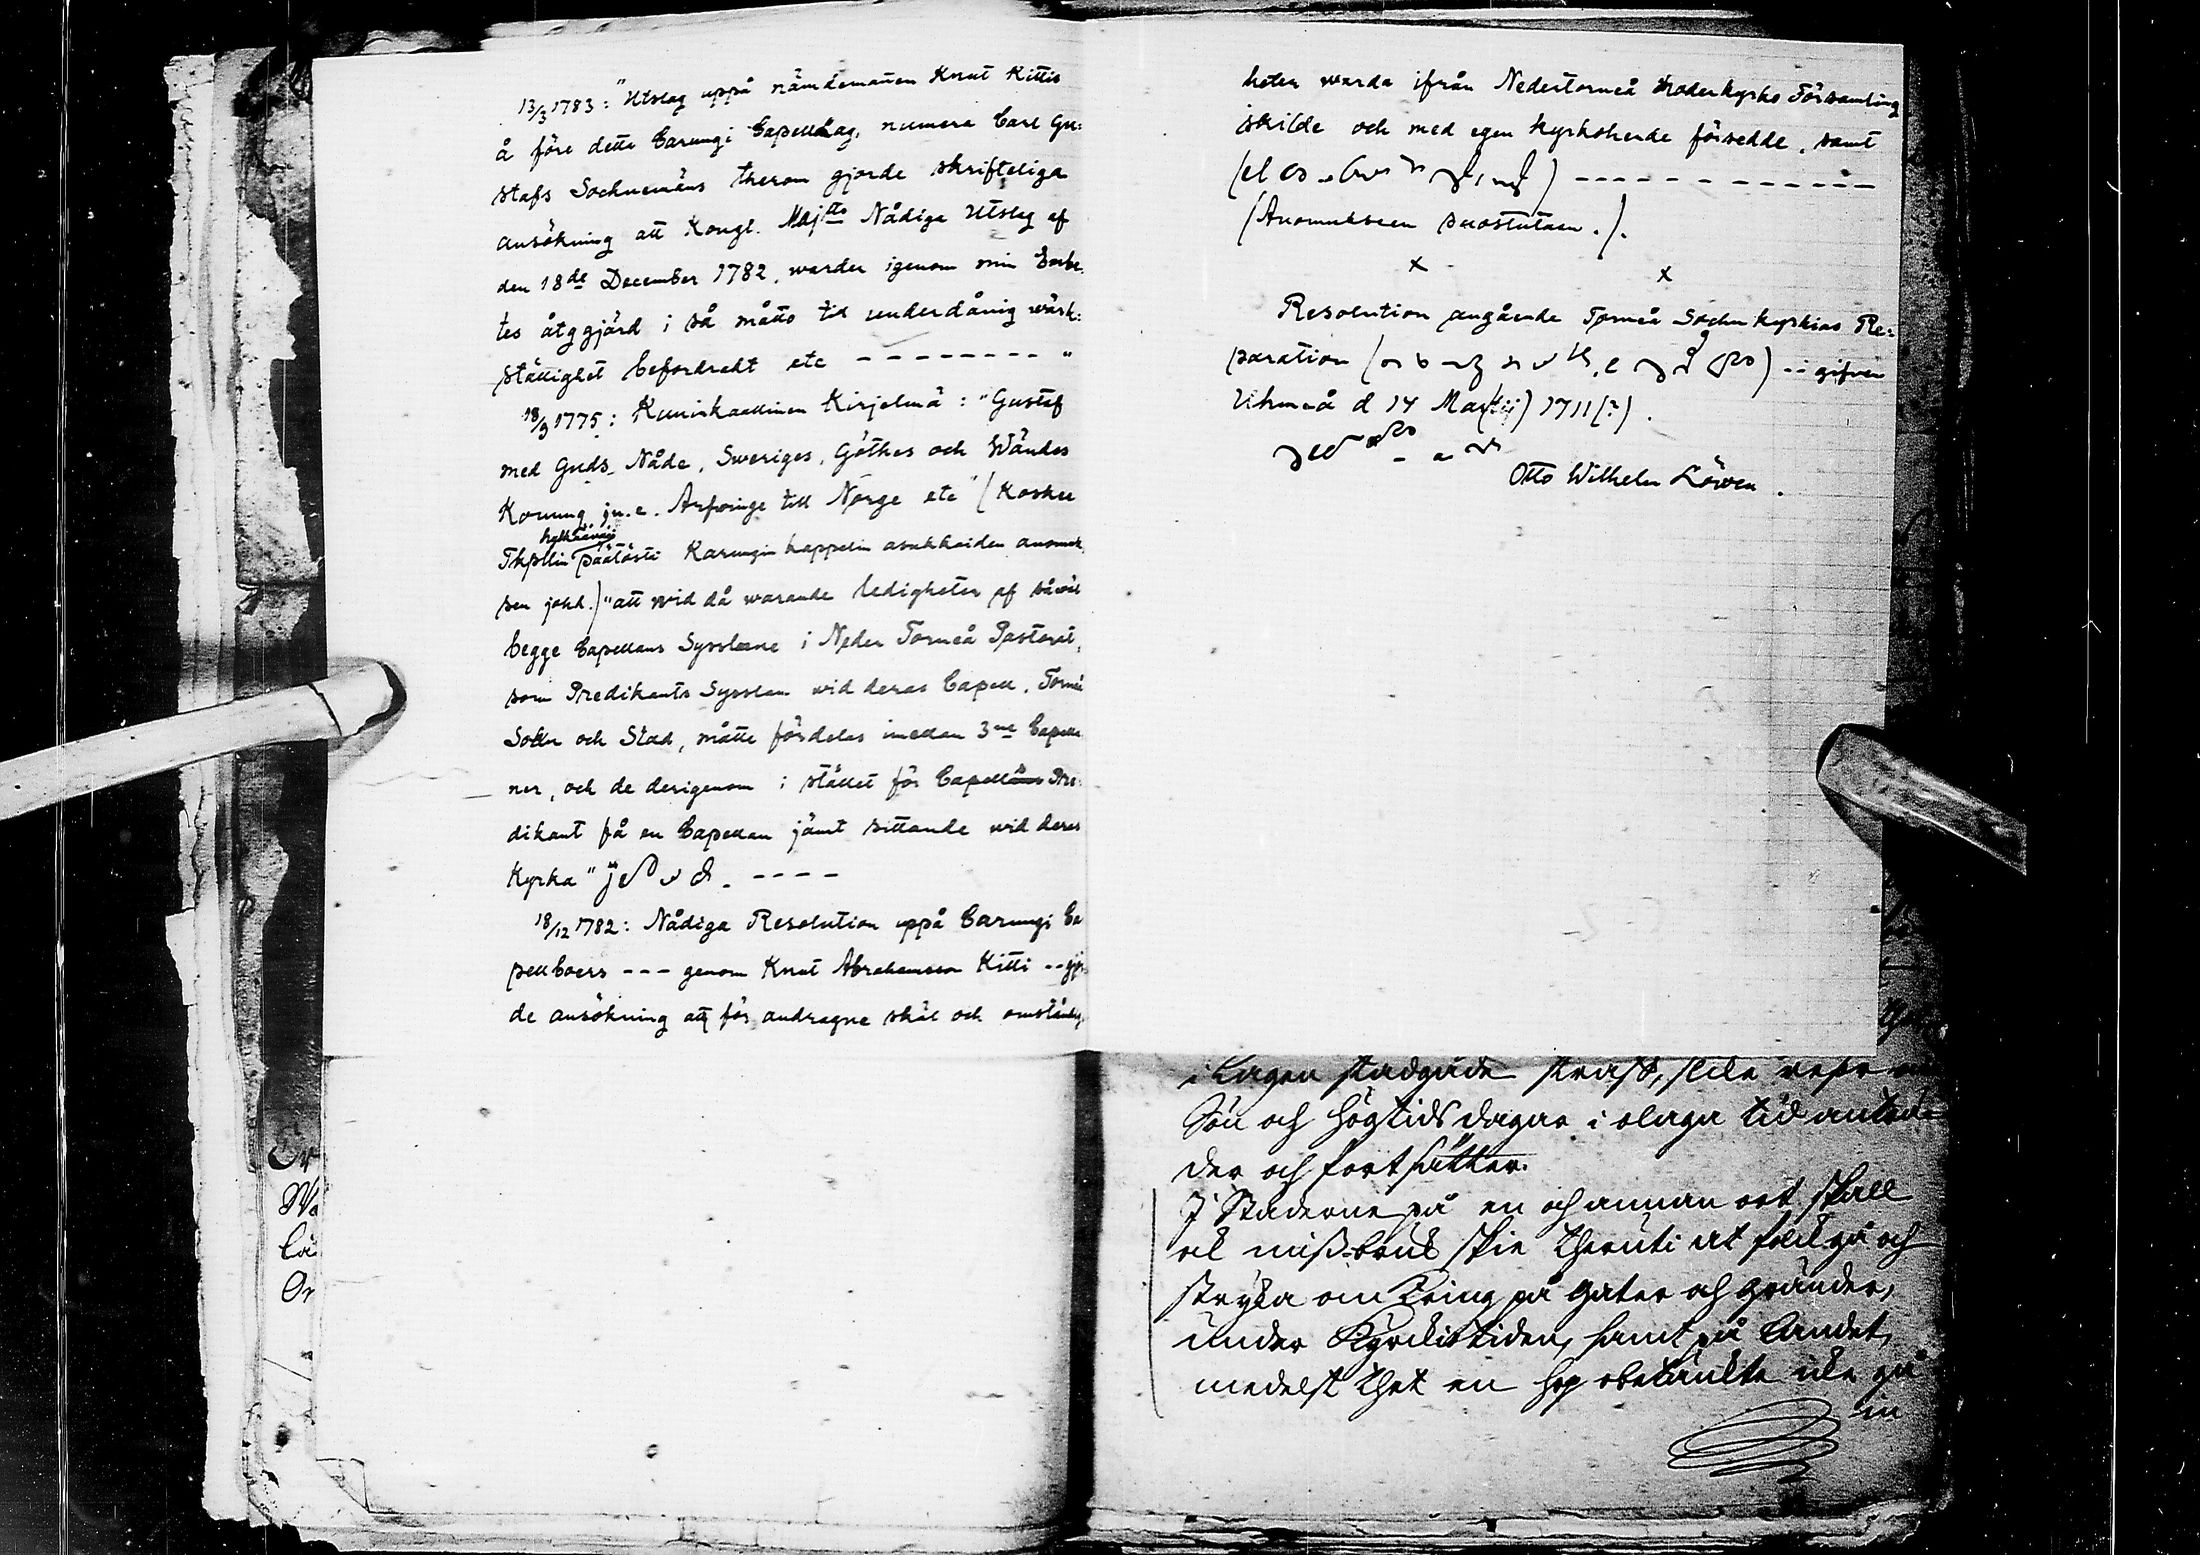 13/3 1783: "Utslag uppå nämdemannen Knut Kittis
å före dette Carungi Capellag, numera Carl Gu:
stafs Sochnemäns therom gjorde skrifteliga
ansökning att Kongl. Majts Nådiga Utslag af
den 18de December 1782, warder igenom min Embe
tes åtggjärd i så måtto til underdånig wärk:
ställighet befordradt etc - - - - - - - - "
18/9 1775: Kuninkaallinen Kirjelmä: "Gustaf
med Guds Nåde, Sweriges, Göthes och Wändes
Konung m. Arfwinge till Norge etc" (Koskee
hylkäävää
Tkpllin päätöstä Karungin kappelin asukkaiden anomuk
sen johd.) "att wid då warande ledigheter af såwäl
begge Capellans Sysslorne i Neder Torneå Pastorat,
som Predikants Sysslan wid deras Capell, Torneå
Sokn och Stad, måtte fördelas imellan 3ne Capella
ner, och de derigenom i stället för Capellans Pre:
dikant få en Capellan jämt sittande wid deras
Kyrka" - - - -
18/12 1782: Nådiga Resolution uppå Carungi Ca
pellboers - - - genom Knut Abrahamsson Kitti - - gjor
de ansökning att för andragne skäl och omständig
heter warda ifrån Nedertorneå Moderkyrko Församling
skilde och med egen Kyrkoherde försedde, samt
- - - - - - - - - - - - -
(Anomukseen suostutaan.).
x x
Resolution angående Torneå Sochn kyrkias Re:
paration - - gifven
Uhmeå d 14 Mar(tij) 1711(?).
Otto Wilhelm Löwen.
i Lagen stadgade straff, slike resor
Sön och Högtidsdagar i olaga tid anträ-
der och fortsätter.
I Städerne på en och annan ort skall
ok miss-bruk skie theruti at folck gå och
stryka om kring på gator och gränder,
under Kyrckiotiden, samt på Landet,
medelst thet en hop obetänckte icke gå
in